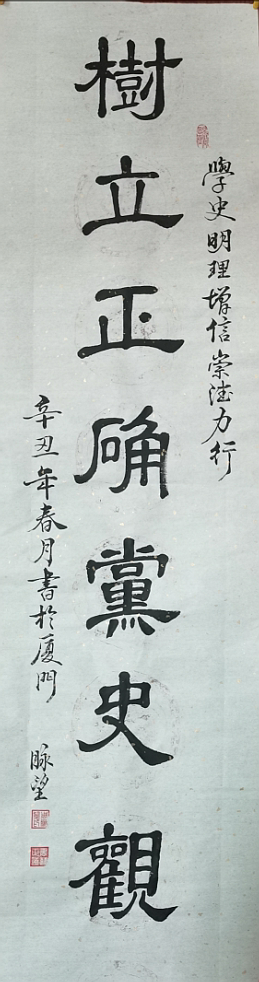 學史明理增信崇德力行
樹立正确黨史觀
辛丑年春月書於厦門 脉望